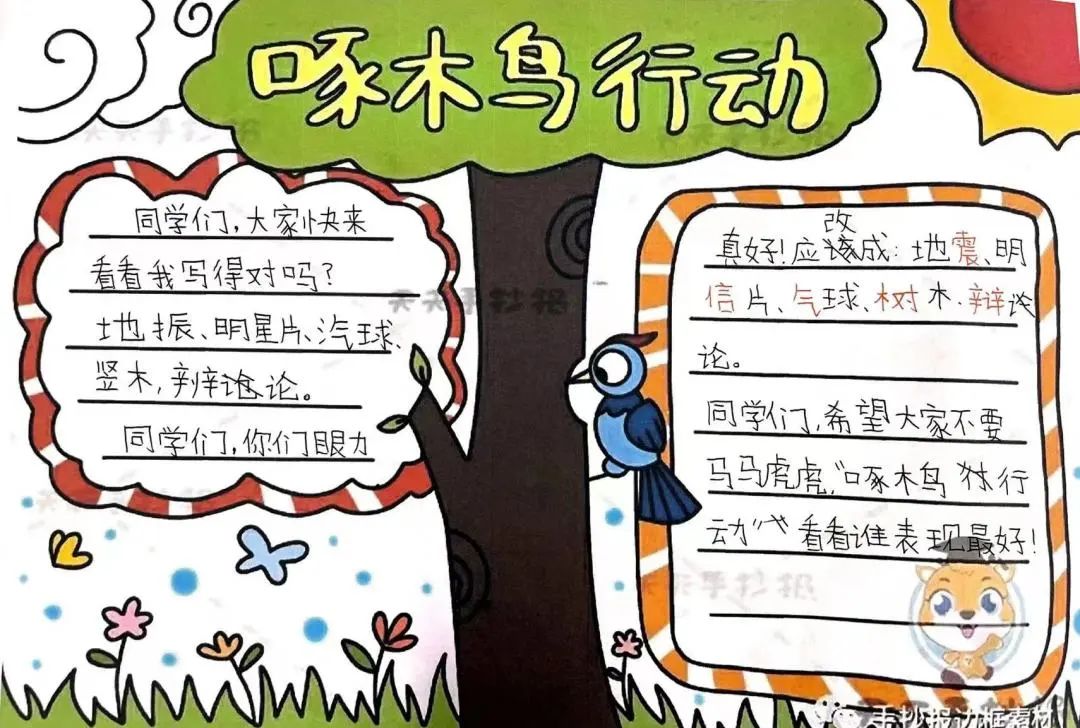 啄木鸟行动
同学们,大家快来
看看我写得对吗?
地振、明星片、汽球、
竖木,辩论。
同学们,你们眼力
改
真好!应成:地震、明
信片、气球、树木、辩
论。
同学们,希望大家不要
马马虎虎,“啄木鸟行
动”看看谁表现最好!
天天手抄报
天天手抄报
天天手抄报
手抄报边框素材